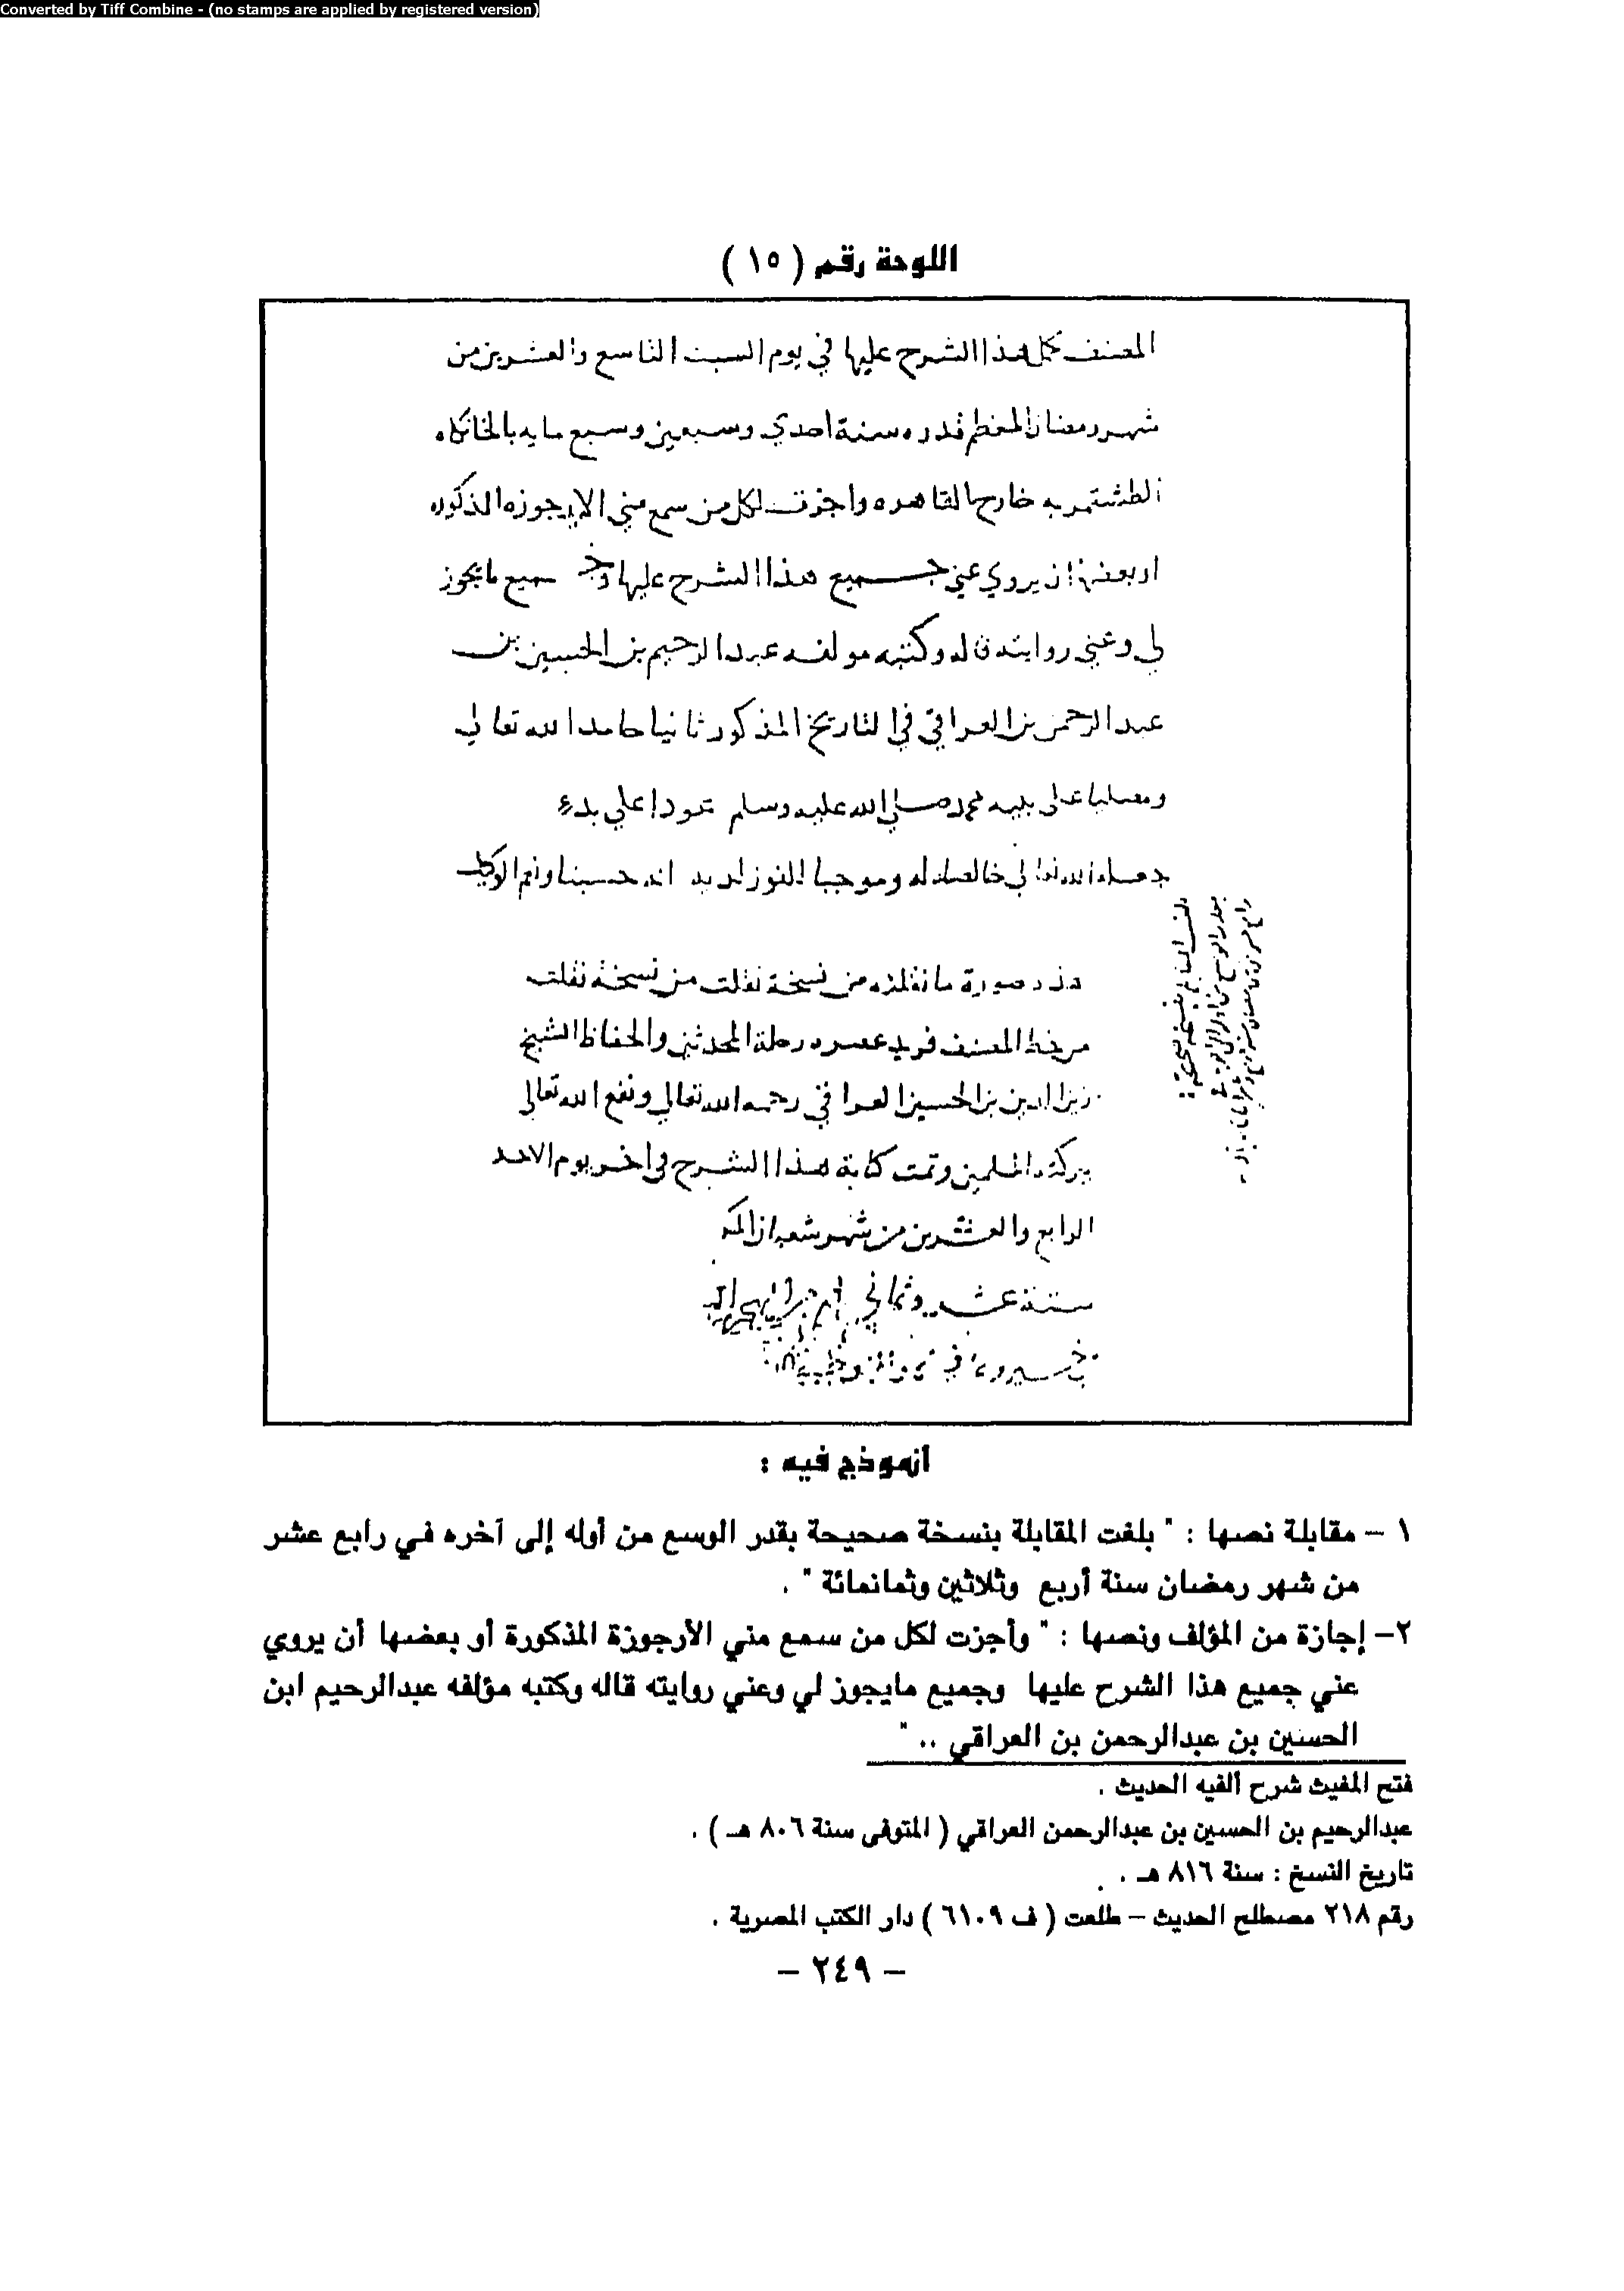 Converted by Tiff Combine - (no stamps are applied by registered version)
اللوحة رقم ( ١٥ )
المصنف كمل هذا الشرح عليها في يوم السبت التاسع والعشرين من
شهر رمضان المعظم قدره سنة احدي وسبعين وسبع مايه بالخانكاه
الطشتمريه خارج القاهره واجزت لكل من سمع مني الارجوزه المذكوره
او بعضها ان يروي عني جميع هذا الشرح عليها وجميع ما يجوز
لي وعني روايته قاله وكتبه مولفه عبد الرحيم بن الحسين بن
عبد الرحمن بن العراقي في التاريخ المذكور ثانيا حامدا لله تعالي
ومصليا على نبيه محمد صلي الله عليه وسلم عودا علي بدء
جعله الله تعالي خالصا له وموجبا للفوز لديه انه حسبنا ونعم الوكيل
بلغت المقابلة بنسخة صحيحة
بقدر الوسع من اوله الى اخره في
رابع عشر من شهر رمضان سنة اربع وثلاثين وثمانمائة
هذه صورة ما نقلته من نسخة نقلت من نسخة نقلت
من خط المصنف فريد عصره رحلة المحدثين والحفاظ الشيخ
زين الدين بن الحسين العراقي رحمه الله تعالي ونفع الله تعالي
ببركته المسلمين وتمت كتابة هذا الشرح في اخر يوم الاحد
الرابع والعشرين من شهر شعبان المكرم
سنة ستة عشر وثماني
أنموذج فيه :
١ – مقابلة نصها : " بلغت المقابلة بنسخة صحيحة بقدر الوسع من أوله إلى آخره في رابع عشر
من شهر رمضان سنة أربع وثلاثين وثمانمائة " .
٢– إجازة من المؤلف ونصها : " وأجزت لكل من سمع مني الأرجوزة المذكورة أو بعضها أن يروي
عني جميع هذا الشرح عليها وجميع مايجوز لي وعني روايته قاله وكتبه مؤلفه عبدالرحيم ابن
الحسنين بن عبدالرحمن بن العراقي .. "
فتح المغيث شرح ألفيه الحديث .
عبدالرحيم بن الحسين بن عبدالرحمن العراقي ( المتوفى سنة ٨٠٦ هـ ) .
تاريخ النسخ : سنة ٨١٦ هـ .
رقم ٢١٨ مصطلح الحديث – طلعت ( ف ٦١٠٩ ) دار الكتب المصرية .
– ٢٤٩ –